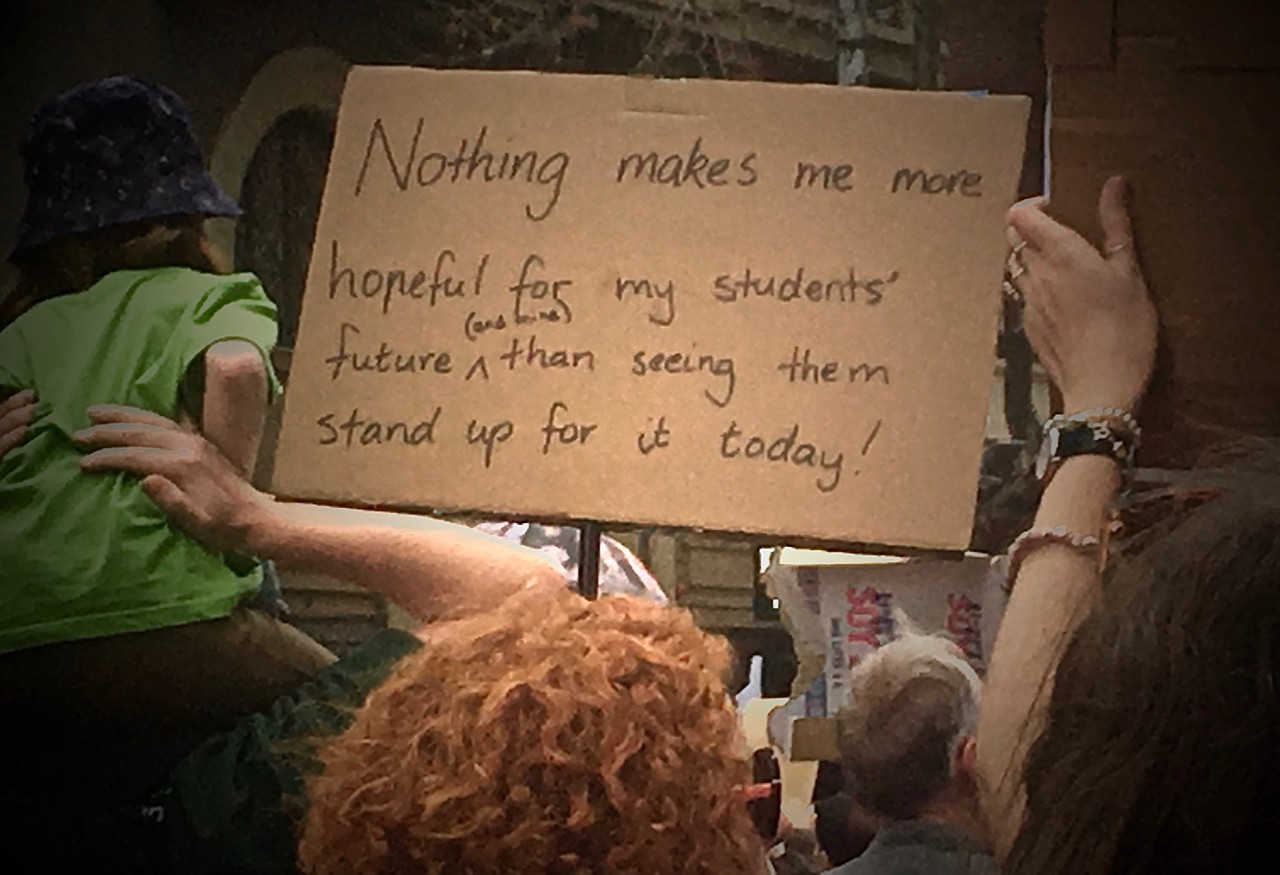 Nothing makes me more
hopeful for my students'
(and mine)
future ^ than seeing them
stand up for it today!
SOY
SOY